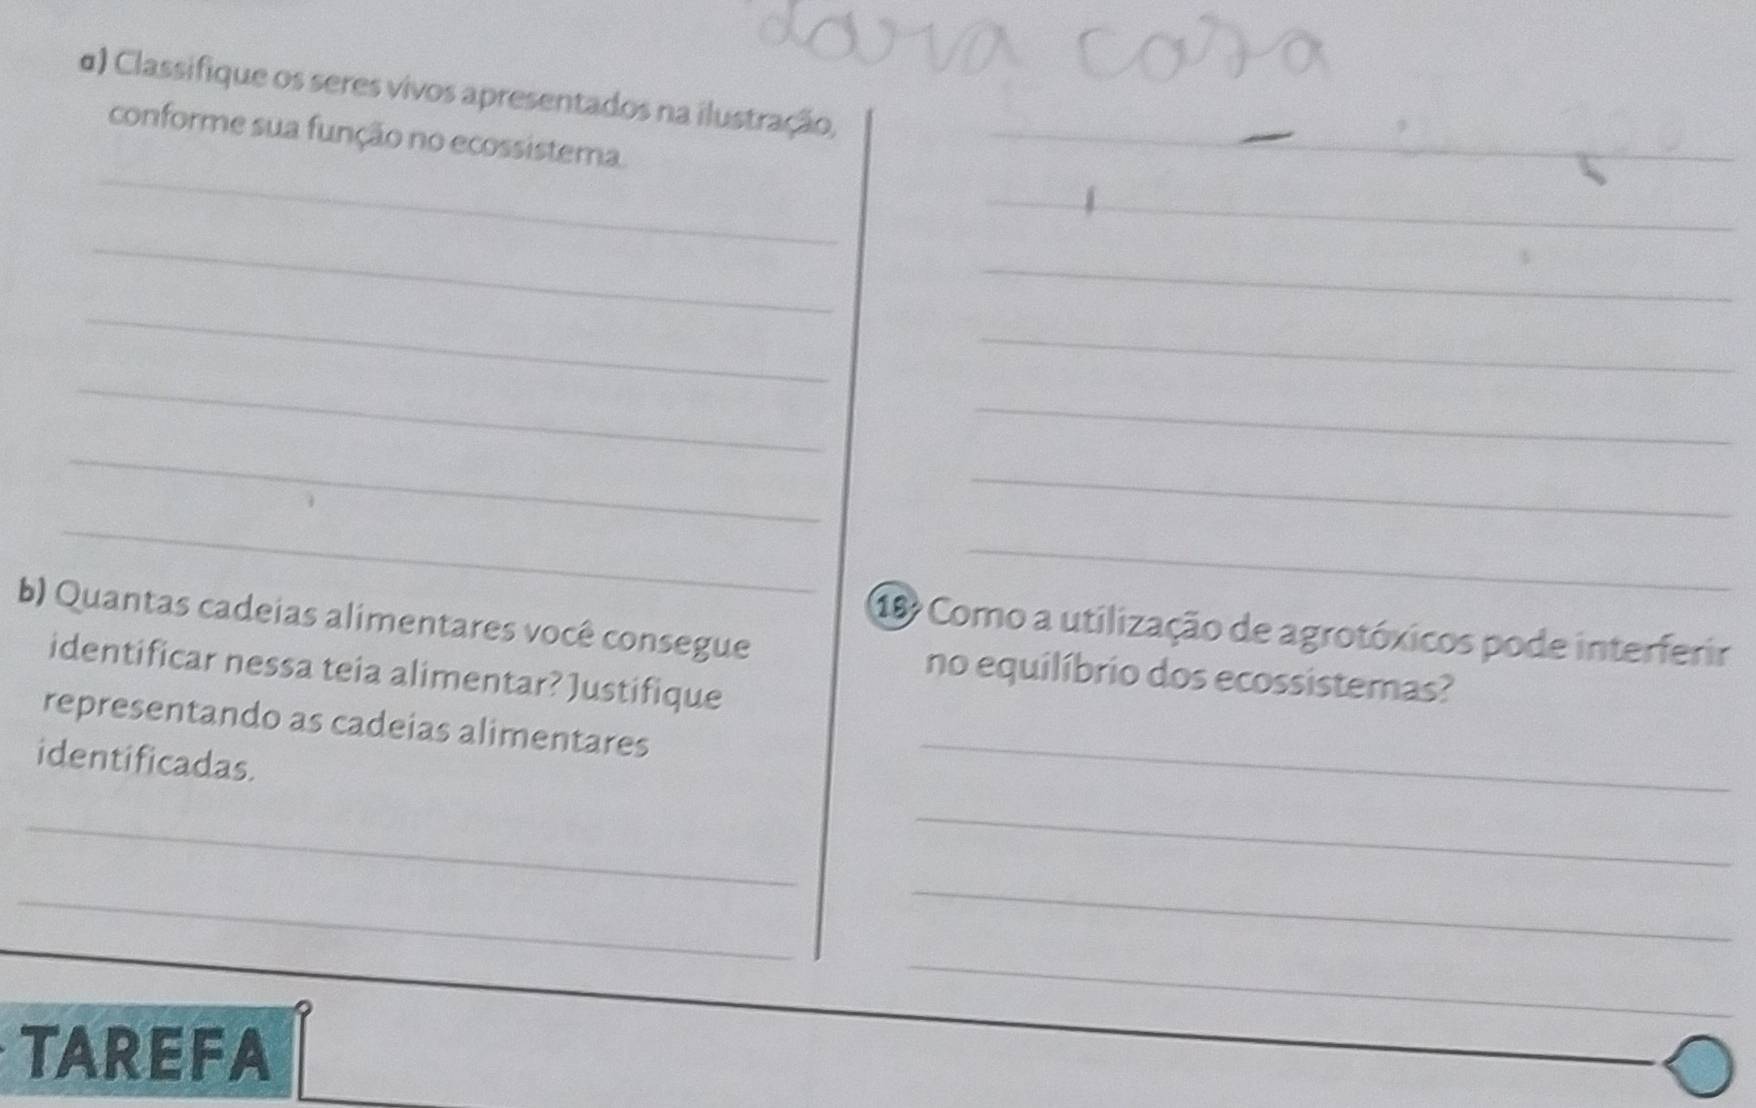 para casa
a) Classifique os seres vivos apresentados na ilustração,
conforme sua função no ecossistema.
b) Quantas cadeias alimentares você consegue
identificar nessa teia alimentar? Justifique
representando as cadeias alimentares
identificadas.
18) Como a utilização de agrotóxicos pode interferir
no equilíbrio dos ecossistemas?
TAREFA